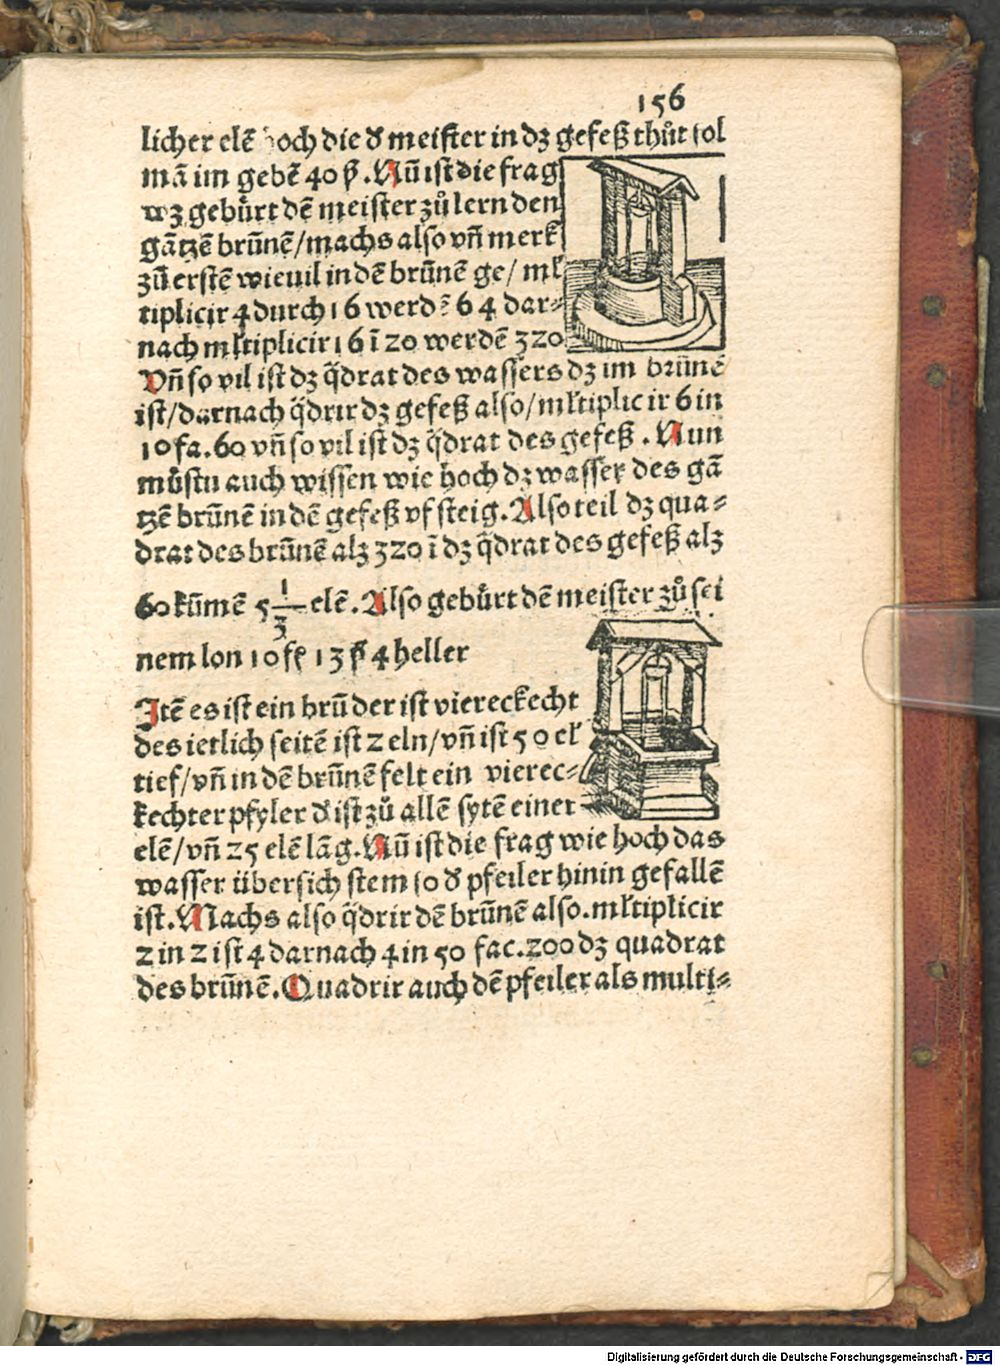 156
licher elē hoch die d̕ meister in dʒ gefeß thůt sol
mā im gebē 40 ß. Nū ist die frag
wʒ gebürt dē meister zů lernden
gātzē brūnē/machs also vñ merk
zū erstē wieuil in dē brūnē ge/ ml̕
tiplicir 4 durch 16 werdē 64 dar⸗
nach ml̕tiplicir 16 ī 20 werdē 320
Vñ so vil ist dʒ q̈drat des wassers dʒ im brūnē
ist/darnach q̈drir dʒ gefeß also/ml̕tiplicir 6 in
10 fa. 60 vñ so vil ist dʒ q̈drat des gefeß. Nun
můstu auch wissen wie hoch dʒ wasser des gā
tzē brūnē in dē gefeß vf steig. Also teil dʒ qua⸗
drat des brūnē alʒ 320 ī dʒ q̈drat des gefeß alʒ
60 kūmē 5 1/3 elē. Also gebürt dē meister zů sei
nem lon 10 fl̕ 13 ß 4 heller
Itē es ist ein brū der ist viereckecht
des ietlich seitē ist 2 eln/vñ ist 50 el̕
tief/vñ in dē brūnē felt ein vierec⸗
kechter pfyler d̕ ist zů allē sytē einer
elē/vñ 25 elē lāg. Nū ist die frag wie hoch das
wasser übersich stem so d̕ pfeiler hinin gefallē
ist. Machs also q̈drir dē brūnē also. ml̕tiplicir
2 in 2 ist 4 darnach 4 in 50 fac. 200 dʒ quadrat
des brūnē. Quadrir auch dē pfeiler als multi⸗
Digitalisierung gefördert durch die Deutsche Forschungsgemeinschaft - DFG